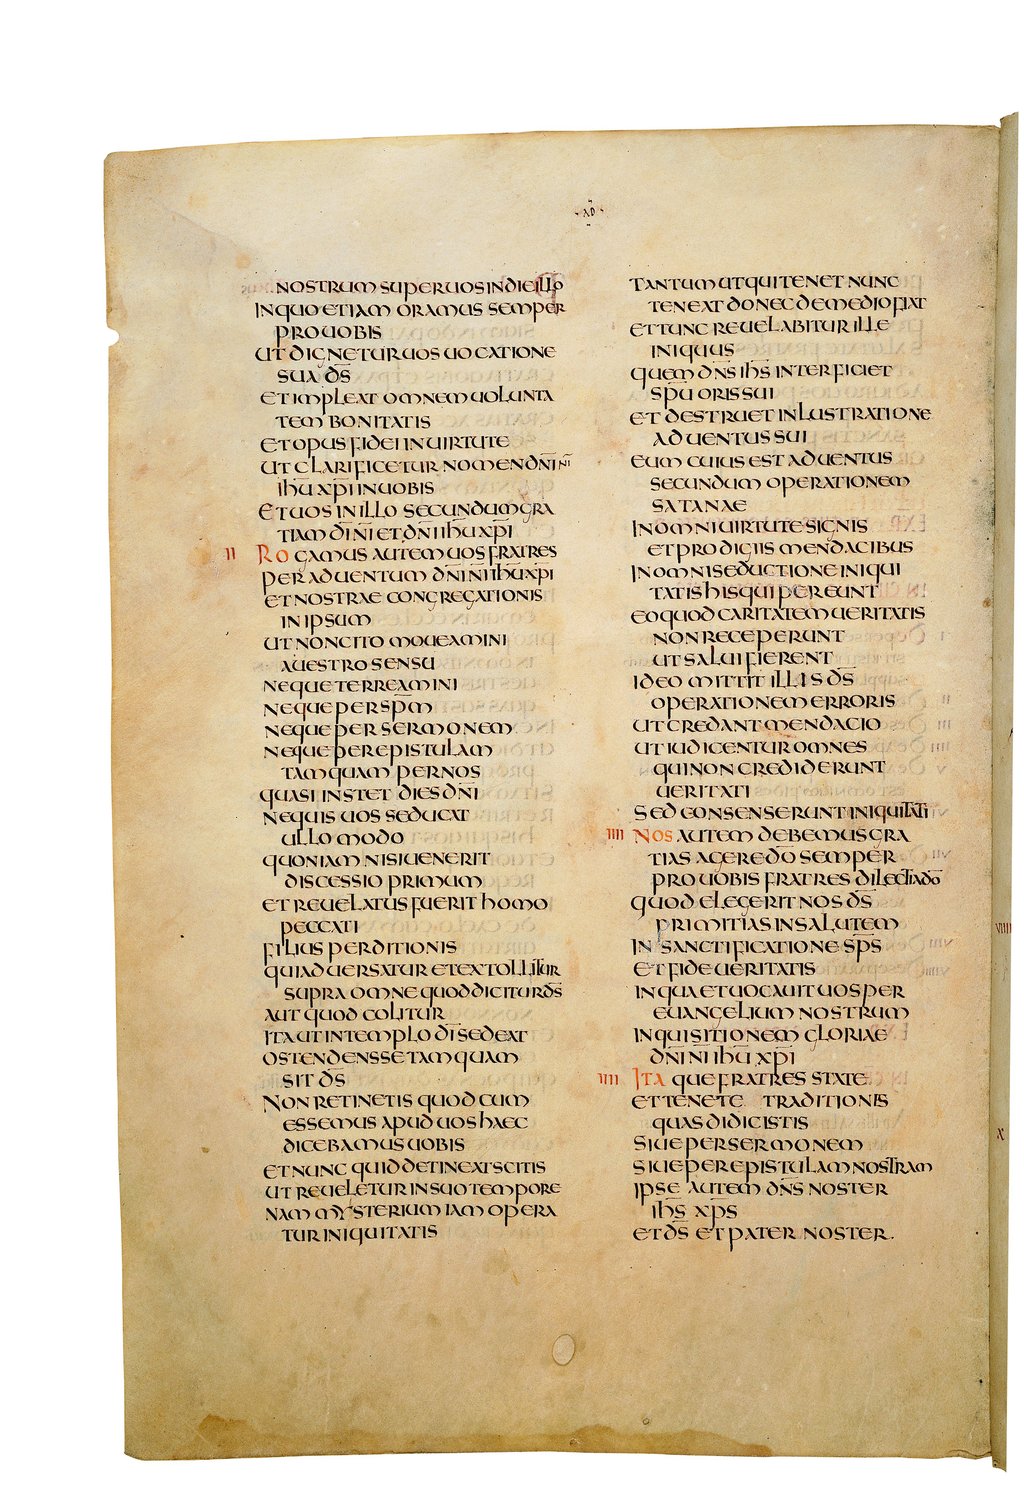 · AD ·
NOSTRUM SUPER UOS IN DIE ILLO
IN QUO ETIAM ORAMUS SEMPER
PRO UOBIS
UT DIGNETUR UOS UOCATIONE
SUA D̅S̅
ET IMPLEAT OMNEM UOLUNTA
TEM BONITATIS
ET OPUS FIDEI IN UIRTUTE
UT CLARIFICETUR NOMEN D̅N̅I̅ N̅I̅
I̅H̅U̅ X̅P̅I̅ IN UOBIS
ET UOS IN ILLO SECUNDUM GRA
TIAM D̅I̅ N̅I̅ ET D̅N̅I̅ I̅H̅U̅ X̅P̅I̅
II ROGAMUS AUTEM UOS FRATRES
PER ADUENTUM D̅N̅I̅ N̅I̅ I̅H̅U̅ X̅P̅I̅
ET NOSTRAE CONGREGATIONIS
IN IPSUM
UT NON CITO MOUEAMINI
A UESTRO SENSU
NEQUE TERREAMINI
NEQUE PER S̅P̅M̅
NEQUE PER SERMONEM
NEQUE PER EPISTULAM
TAMQUAM PER NOS
QUASI INSTET DIES D̅N̅I̅
NE QUIS UOS SEDUCAT
ULLO MODO
QUONIAM NISI UENERIT
DISCESSIO PRIMUM
ET REUELATUS FUERIT HOMO
PECCATI
FILIUS PERDITIONIS
QUI ADUERSATUR ET EXTOLLITUR
SUPRA OMNE QUOD DICITUR D̅S̅
AUT QUOD COLITUR
ITA UT IN TEMPLO D̅I̅ SEDEAT
OSTENDENS SE TAMQUAM
SIT D̅S̅
NON RETINETIS QUOD CUM
ESSEMUS APUD UOS HAEC
DICEBAM UOBIS
ET NUNC QUID DETINEAT SCITIS
UT REUELETUR IN SUO TEMPORE
NAM MYSTERIUM IAM OPERA
TUR INIQUITATIS
TANTUM UT QUI TENET NUNC
TENEAT DONEC DE MEDIO FIAT
ET TUNC REUELABITUR ILLE
INIQUUS
QUEM D̅N̅S̅ I̅H̅S̅ INTERFICIET
S̅P̅U̅ ORIS SUI
ET DESTRUET INLUSTRATIONE
ADUENTUS SUI
EUM CUIUS EST ADUENTUS
SECUNDUM OPERATIONEM
SATANAE
IN OMNI UIRTUTE SIGNIS
ET PRODIGIIS MENDACIBUS
IN OMNI SEDUCTIONE INIQUI
TATIS HIS QUI PEREUNT
EO QUOD CARITATEM UERITATIS
NON RECEPERUNT
UT SALUI FIERENT
IDEO MITTIT ILLIS D̅S̅
OPERATIONEM ERRORIS
UT CREDANT MENDACIO
UT IUDICENTUR OMNES
QUI NON CREDIDERUNT
UERITATI
SED CONSENSERUNT INIQUITATI
IIII NOS AUTEM DEBEMUS GRA
TIAS AGERE D̅O̅ SEMPER
PRO UOBIS FRATRES DILECTI A D̅O̅
QUOD ELEGERIT NOS D̅S̅
PRIMITIAS IN SALUTEM
IN SANCTIFICATIONE S̅P̅S̅
ET FIDE UERITATIS
IN QUA ET UOCAUIT UOS PER
EUANGELIUM NOSTRUM
IN QUISITIONEM GLORIAE
D̅N̅I̅ N̅I̅ I̅H̅U̅ X̅P̅I̅
IIII ITAQUE FRATRES STATE
ET TENETE TRADITIONIS
QUAS DIDICISTIS
SIUE PER SERMONEM
SIUE PER EPISTULAM NOSTRAM
IPSE AUTEM D̅N̅S̅ NOSTER
I̅H̅S̅ X̅P̅S̅
ET D̅S̅ ET PATER NOSTER.